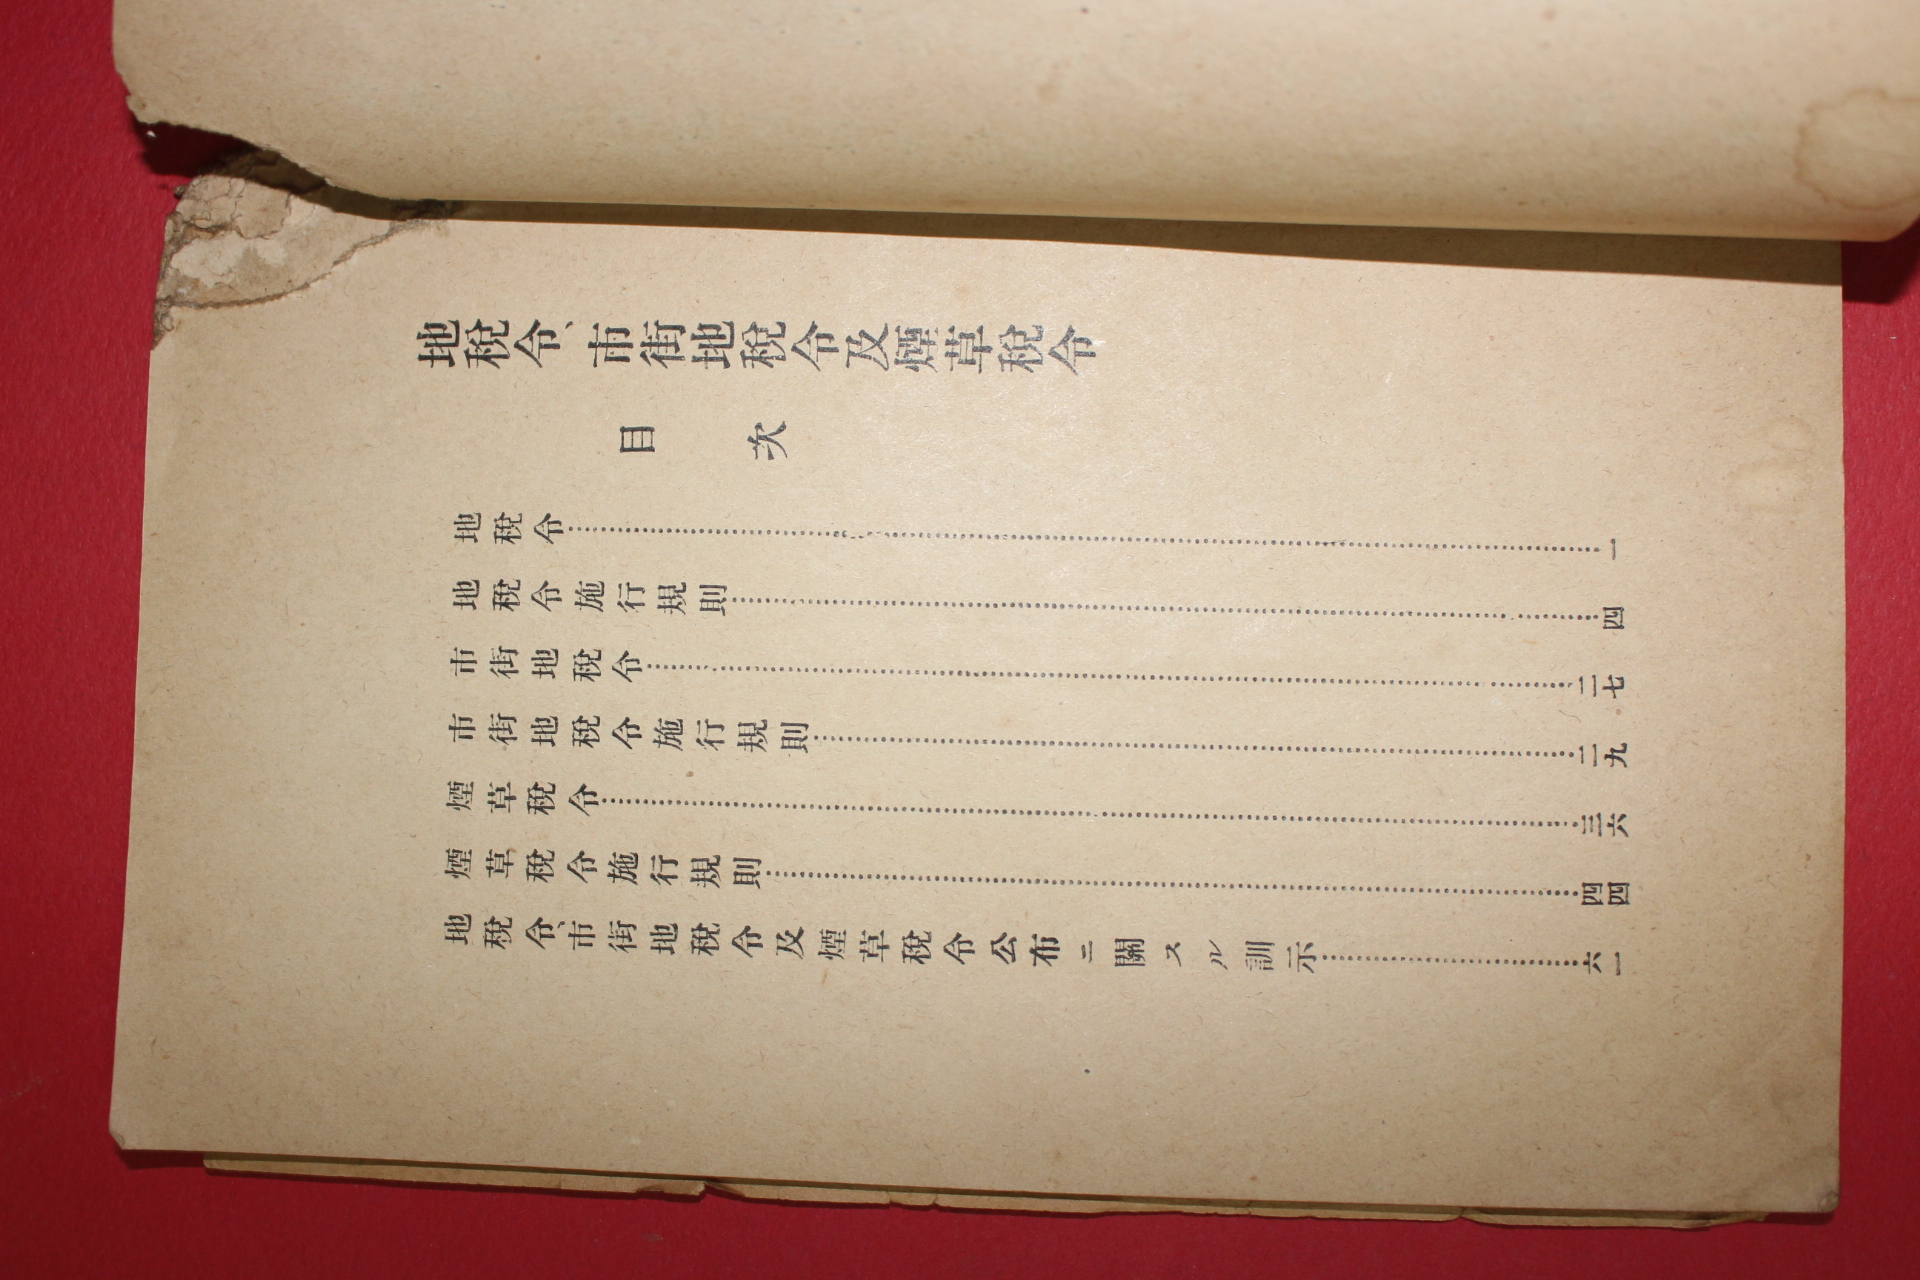 地稅令、市街地稅令及煙草稅令
目次
地稅令…………一
地稅令施行規則…………四
市街地稅令…………二七
市街地稅令施行規則…………二九
煙草稅令…………三六
煙草稅令施行規則…………四四
地稅令、市街地稅令及煙草稅令公布ニ關スル訓示…………六一